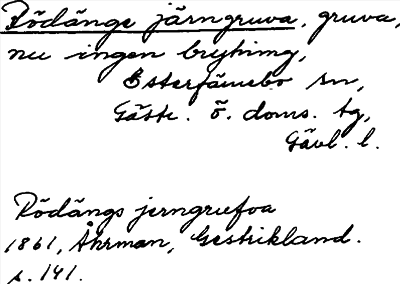 Rödängs järngruva, gruva,
nu ingen brytning,
Österfärnebo sn,
Gästr. ö. doms. tg,
Gävl. l.
Rödängs jerngrufva
1861, Åhrman, Gestrikland.
s. 141.